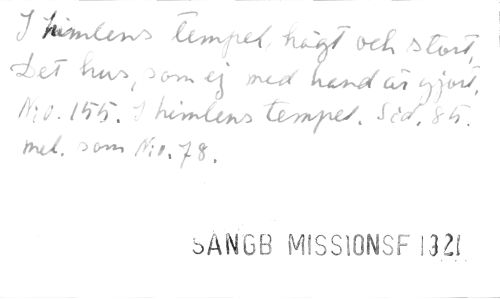 I himlens tempel, högt och stort,
Det hus, som ej med hand är gjort.
No. 155. I himlens tempel. Sid. 85.
mel. som No. 78.
SANGB MISSIONSF 1921